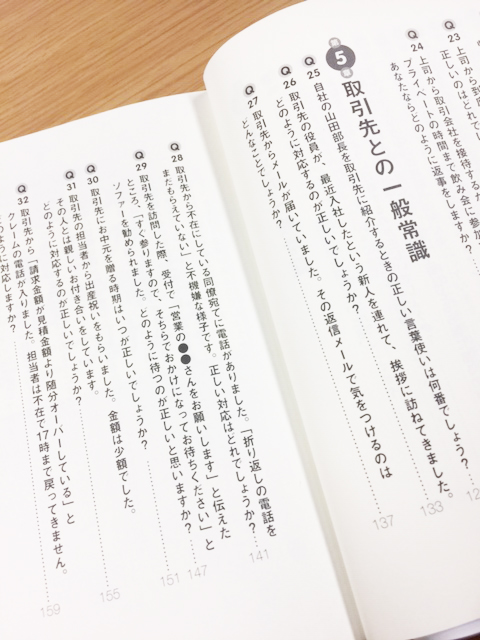 Q23
上司から到
正しいのはどれでし
Q24
上司から取引会社を接待するた
プライベートの時間まで飲み会に参加
あなたならどのように返事をしますか？
5
取引先との一般常識
Q25
自社の山田部長を取引先に紹介するときの正しい言葉使いは何番でしょう？
133
Q26
取引先の役員が、最近入社したという新人を連れて、挨拶に訪ねてきました。
どのように対応するのが正しいでしょうか？
137
Q27
取引先からメールが届いていました。その返信メールで気をつけるのは
どんなことでしょうか？
141
Q28
取引先から不在にしている同僚宛てに電話がありました。「折り返しの電話を
まだもらえていない」と不機嫌な様子です。正しい対応はどれでしょうか？
147
Q29
取引先を訪問した際、受付で「営業の●●さんをお願いします」と伝えた
ところ、「すぐ参りますので、そちらでおかけになってお待ちください」と
ソファーを勧められました。どのように待つのが正しいと思いますか？
151
Q30
取引先にお中元を贈る時期はいつが正しいでしょうか？
155
Q31
取引先の担当者から出産祝いをもらいました。金額は少額でした。
その人とは親しいお付き合いをしています。
どのように対応するのが正しいでしょうか？
159
Q32
取引先から「請求金額が見積金額より随分オーバーしている」と
クレームの電話が入りました。担当者は不在で17時まで戻ってきません。
どのように対応しますか？